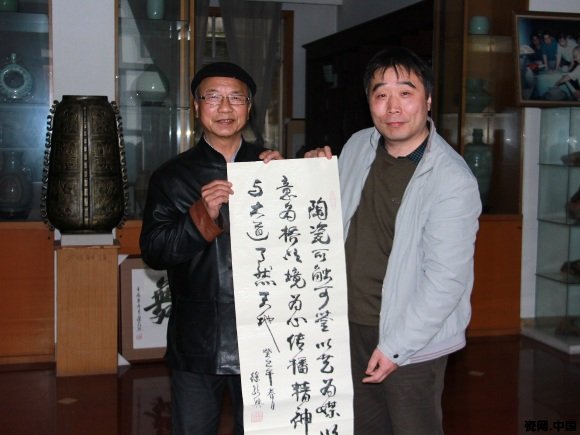 陶瓷可可以艺为媒以
意为桥以境为心传播精神
与道了然天地
癸巳年春月
瓷网.中国